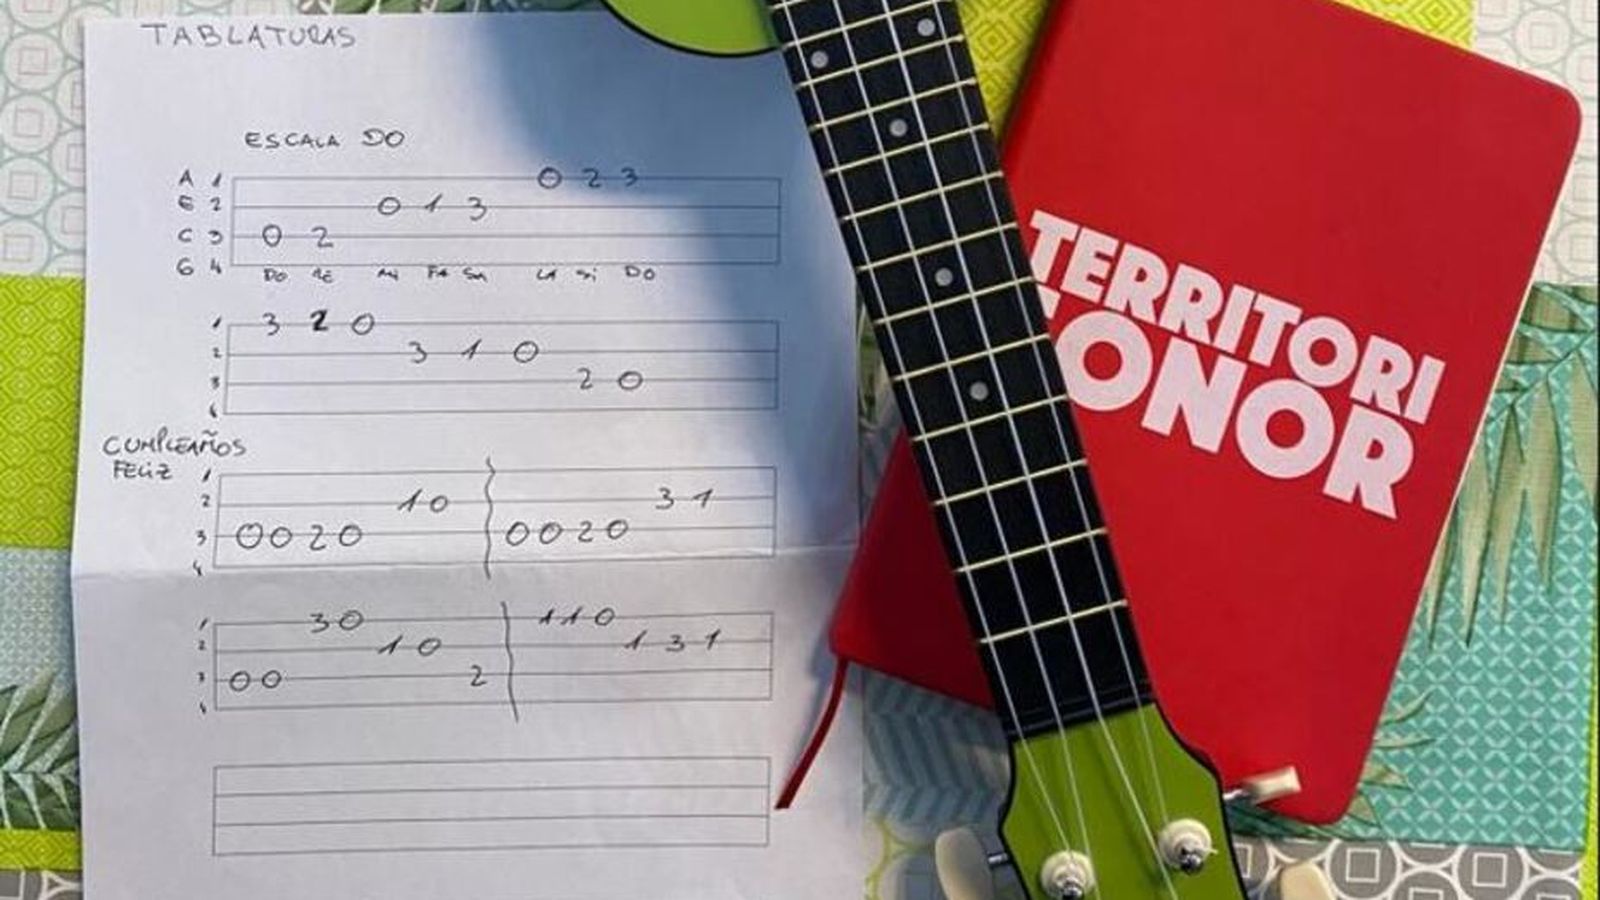 TABLATURAS
ESCALA DO
A 1 0 2 3
E 2 0 1 3
C 3 0 2
G 4
DO RE MI FA SOL LA SI DO
1 3 2 0
2 3 1 0
3 2 0
4
CUMPLEAÑOS
FELIZ
1
2 1 0 3 1
3 0 0 2 0 0 0 2 0
4
1 3 0 1 1 0
2 1 0 1 3 1
3 0 0 2
4
TERRITORI
SONOR